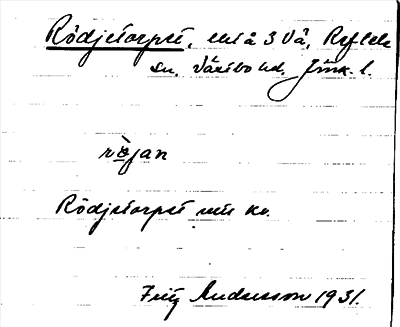 Rödjetorpet, ut å 3 Vå, Reftele
sn. Västbo hd. Jönk. l.
rø̀jan
Rödjetorpet
Fritz Andersson 1931.